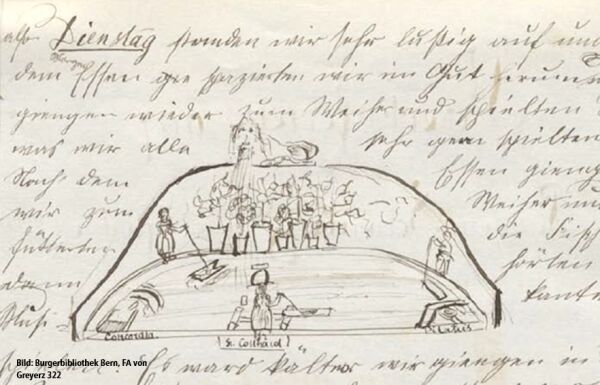 also Dienstag standen wir sehr lustig auf und
dem Essen spazierten wir im Gut herum
giengen wieder zum Weiher und spielten
was wir alle sehr gern spielten
Nach dem Essen gieng
wir zum Weiher und
fütterten die Fisch
dann hörten
Musi-
Concordia St. Gotthard Pilatus
Es ward kalter wir giengen in
Bild: Burgerbibliothek Bern, FA von
Greyerz 322